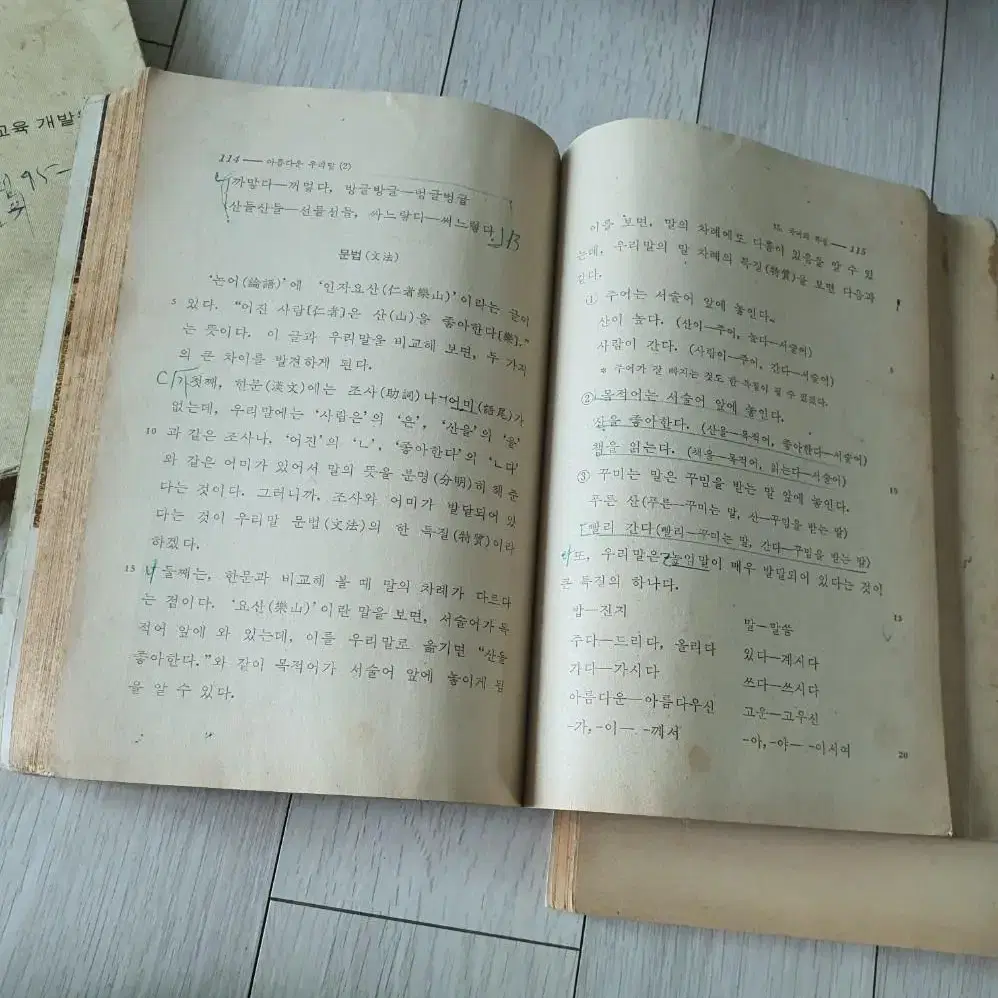 교육 개발
95-
114 — 아름다운 우리말 (2)
까맣다—꺼멓다, 방글방글—벙글벙글
산들산들—선들선들, 싸느랗다—써느렇다.
문법(文法)
‘논어(論語)’에 ‘인자요산(仁者樂山)’이라는 글이
5 있다. “어진 사람[仁者]은 산(山)을 좋아한다[樂].”
는 뜻이다. 이 글과 우리말을 비교해 보면, 두 가지
의 큰 차이를 발견하게 된다.
첫째, 한문(漢文)에는 조사(助詞)나 어미(語尾)가
없는데, 우리말에는 ‘사람은’의 ‘은’, ‘산을’의 ‘을’
10 과 같은 조사나, ‘어진’의 ‘ㄴ’, ‘좋아한다’의 ‘ㄴ다’
와 같은 어미가 있어서 말의 뜻을 분명(分明)히 해 준
다는 것이다. 그러니까, 조사와 어미가 발달되어 있
다는 것이 우리말 문법(文法)의 한 특질(特質)이라
하겠다.
15 둘째는, 한문과 비교해 볼 때 말의 차례가 다르다
는 점이다. ‘요산(樂山)’이란 말을 보면, 서술어가 목
적어 앞에 와 있는데, 이를 우리말로 옮기면 “산을
좋아한다.”와 같이 목적어가 서술어 앞에 놓이게 됨
을 알 수 있다.
12. 국어의 특질 — 115
이를 보면, 말의 차례에도 다름이 있음을 알 수 있
는데, 우리말의 말 차례의 특질(特質)을 보면 다음과
같다.
① 주어는 서술어 앞에 놓인다.
산이 높다. (산이—주어, 높다—서술어)
사람이 간다. (사람이—주어, 간다—서술어) 5
* 주어가 잘 빠지는 것도 한 특질이 될 수 있겠다.
② 목적어는 서술어 앞에 놓인다.
산을 좋아한다. (산을—목적어, 좋아한다—서술어)
책을 읽는다. (책을—목적어, 읽는다—서술어)
③ 꾸미는 말은 꾸밈을 받는 말 앞에 놓인다. 10
푸른 산(푸른—꾸미는 말, 산—꾸밈을 받는 말)
빨리 간다(빨리—꾸미는 말, 간다—꾸밈을 받는 말)
또, 우리말은 높임말이 매우 발달되어 있다는 것이
큰 특징의 하나다.
밥—진지 말—말씀 15
주다—드리다, 올리다 있다—계시다
가다—가시다 쓰다—쓰시다
아름다운—아름다우신 고운—고우신
-가, -이— -께서 -아, -야— -이시여 20